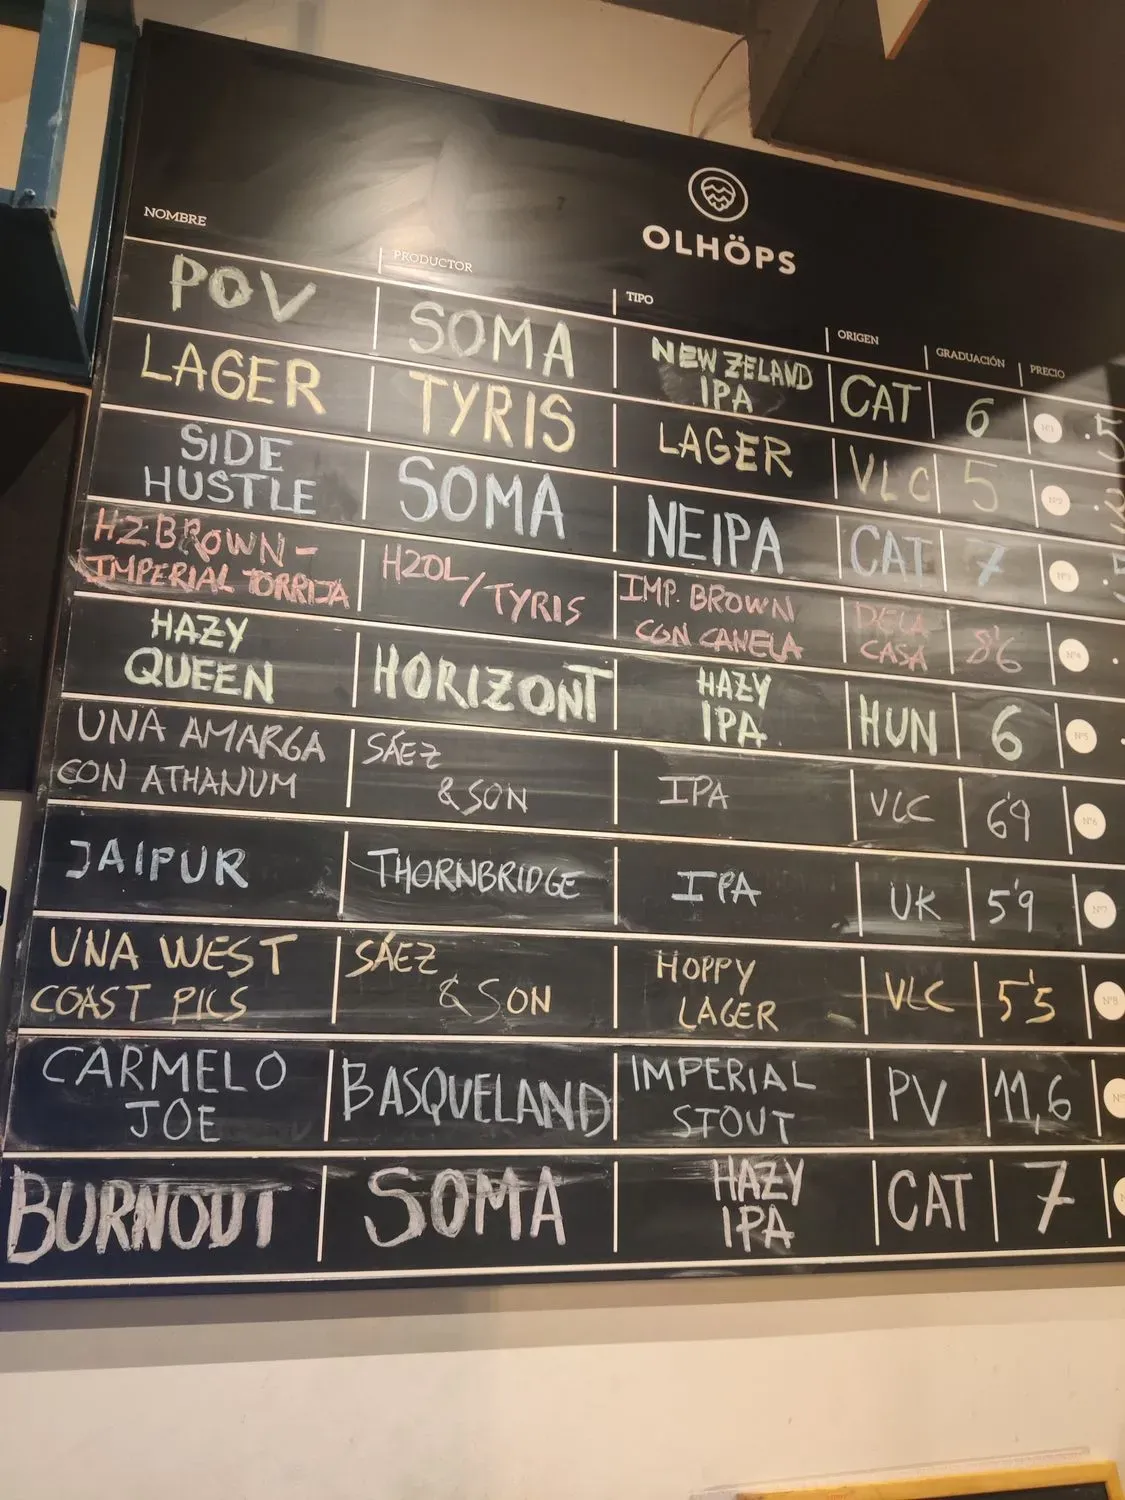 OLHÖPS
NOMBRE PRODUCTOR TIPO ORIGEN GRADUACIÓN PRECIO
POV SOMA NEW ZELAND IPA CAT 6 Nº1
LAGER TYRIS LAGER VLC 5 Nº2
SIDE HUSTLE SOMA NEIPA CAT 7 Nº3
HZBROWN - IMPERIAL TORRIJA H2OL/TYRIS IMP. BROWN CON CANELA DE LA CASA 8'6 Nº4
HAZY QUEEN HORIZONT HAZY IPA HUN 6 Nº5
UNA AMARGA CON ATHANUM SÁEZ & SON IPA VLC 6'9 Nº6
JAIPUR THORNBRIDGE IPA UK 5'9 Nº7
UNA WEST COAST PILS SÁEZ & SON HOPPY LAGER VLC 5'5 Nº8
CARMELO JOE BASQUELAND IMPERIAL STOUT PV 11,6
BURNOUT SOMA HAZY IPA CAT 7